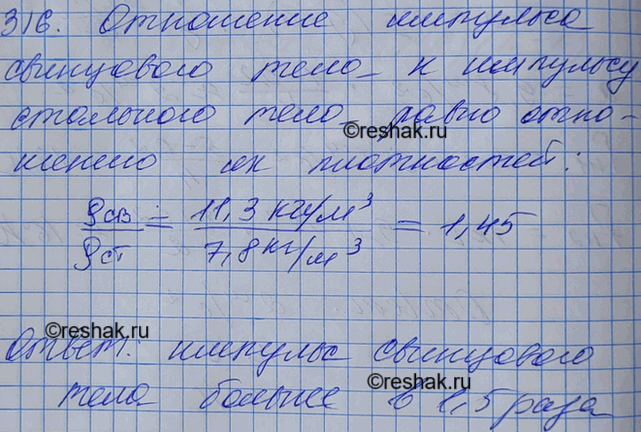 316. Отношение импульса
свинцового тела к импульсу
стального тела равно отно-
©reshak.ru
шению их плотностей:
ρсв/ρст = 11,3 кг/м³ / 7,8 кг/м³ = 1,45
©reshak.ru
Ответ: импульс свинцового
©reshak.ru
тела больше в 1,5 раза